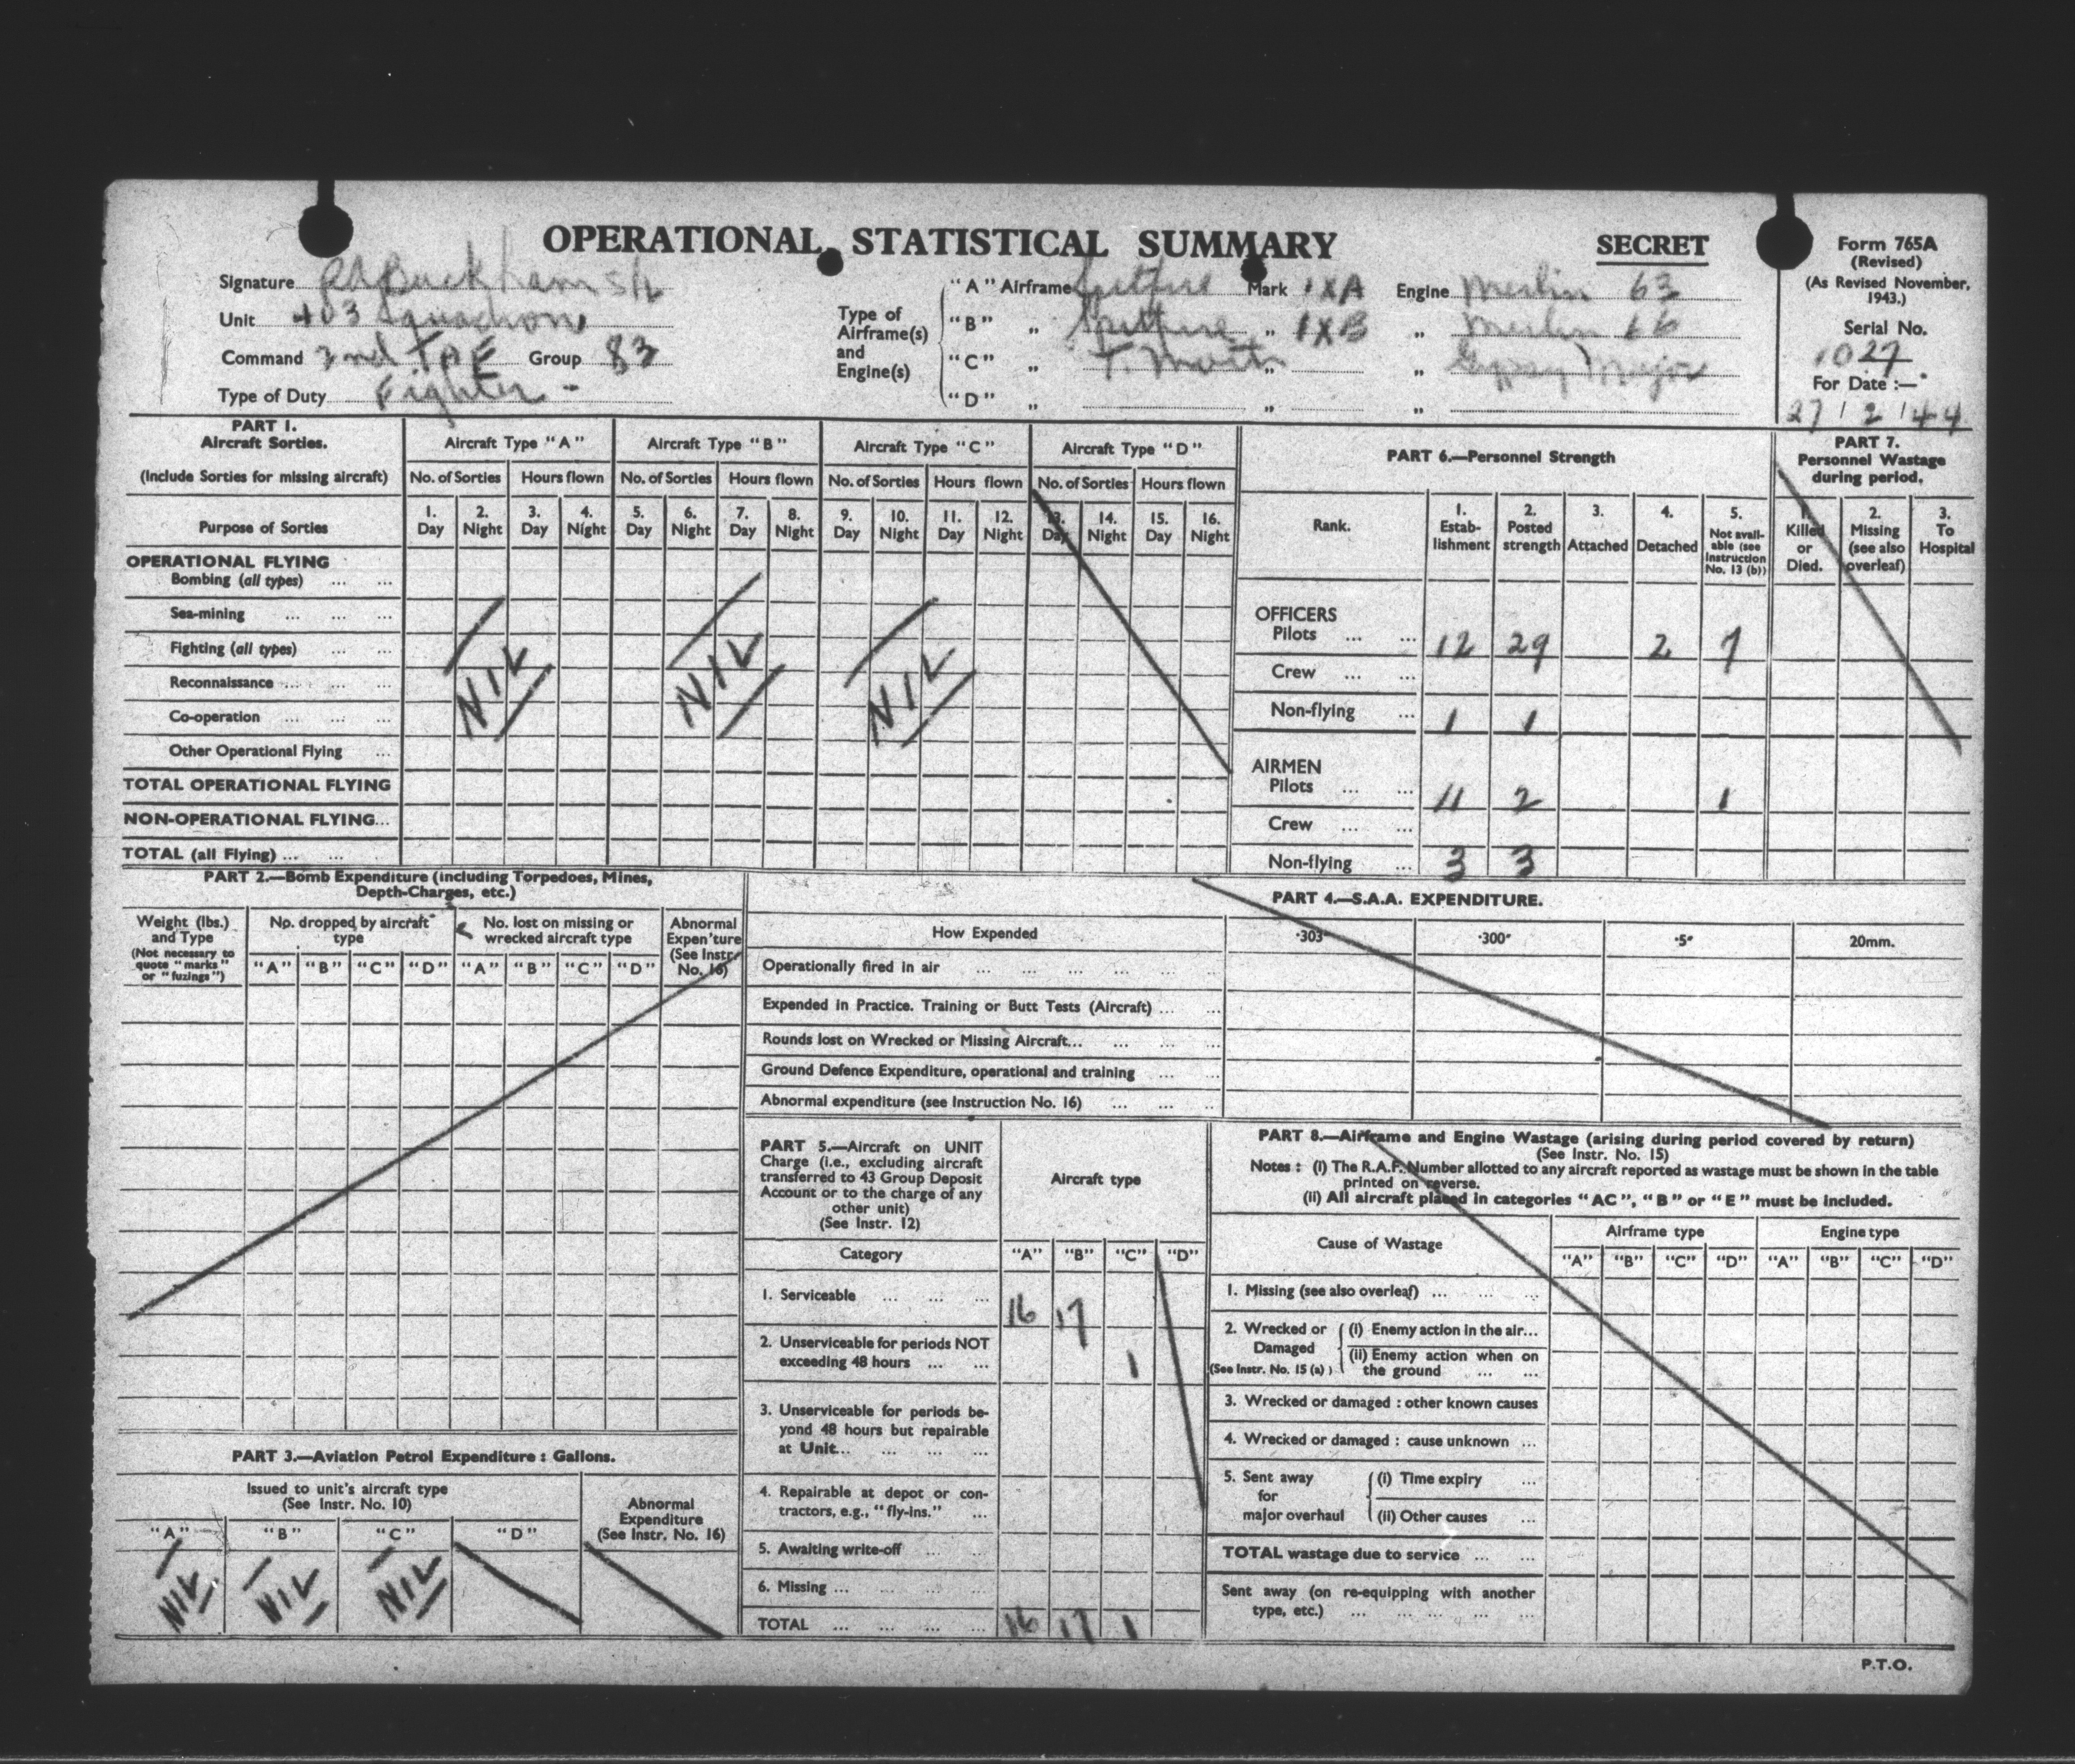 OPERATIONAL STATISTICAL SUMMARY
SECRET
Form 765A
(Revised)
(As Revised November, 1943.)
Serial No.
1027
For Date :—
27/2/44
Signature RABuckham S/L
Unit 403 Squadron
Command 2nd TAF Group 83
Type of Duty Fighter -
Type of Airframe(s) and Engine(s)
"A" Airframe Spitfire Mark IXA Engine Merlin 63
"B" „ Spitfire „ IXB „ Merlin 66
"C" „ T. Moth „ „ Gypsy Major
"D" „ „ „
PART 1.
Aircraft Sorties.
(Include Sorties for missing aircraft)
Aircraft Type "A" Aircraft Type "B" Aircraft Type "C" Aircraft Type "D"
No. of Sorties Hours flown No. of Sorties Hours flown No. of Sorties Hours flown No. of Sorties Hours flown
Purpose of Sorties
1. Day 2. Night 3. Day 4. Night 5. Day 6. Night 7. Day 8. Night 9. Day 10. Night 11. Day 12. Night 13. Day 14. Night 15. Day 16. Night
OPERATIONAL FLYING
Bombing (all types) ... ...
Sea-mining ... ... ...
Fighting (all types) ... ...
Reconnaissance ... ... ...
Co-operation ... ... ...
Other Operational Flying ...
NIL NIL NIL
TOTAL OPERATIONAL FLYING
NON-OPERATIONAL FLYING...
TOTAL (all Flying) ... ...
PART 6.—Personnel Strength
Rank.
1. Estab-lishment 2. Posted strength 3. Attached 4. Detached 5. Not avail-able (see Instruction No. 13 (b))
OFFICERS
Pilots ... ... 12 29 2 7
Crew ... ...
Non-flying ... 1 1
AIRMEN
Pilots ... ... 11 2 1
Crew ... ...
Non-flying ... 3 3
PART 7.
Personnel Wastage during period.
1. Killed or Died. 2. Missing (see also overleaf) 3. To Hospital
PART 2.—Bomb Expenditure (including Torpedoes, Mines, Depth-Charges, etc.)
Weight (lbs.) and Type
(Not necessary to quote "marks" or "fuzings")
No. dropped by aircraft type
No. lost on missing or wrecked aircraft type
Abnormal Expen'ture (See Instr. No. 16)
"A" "B" "C" "D" "A" "B" "C" "D"
PART 3.—Aviation Petrol Expenditure : Gallons.
Issued to unit's aircraft type
(See Instr. No. 10)
Abnormal Expenditure (See Instr. No. 16)
"A" "B" "C" "D"
NIL NIL NIL
PART 4.—S.A.A. EXPENDITURE.
How Expended ·303" ·300" ·5" 20mm.
Operationally fired in air ... ... ... ... ... ...
Expended in Practice. Training or Butt Tests (Aircraft) ... ...
Rounds lost on Wrecked or Missing Aircraft... ... ... ...
Ground Defence Expenditure, operational and training ... ...
Abnormal expenditure (see Instruction No. 16) ... ... ...
PART 5.—Aircraft on UNIT Charge (i.e., excluding aircraft transferred to 43 Group Deposit Account or to the charge of any other unit)
(See Instr. 12)
Aircraft type
Category "A" "B" "C" "D"
1. Serviceable ... ... ... 16 17
2. Unserviceable for periods NOT exceeding 48 hours ... ... 1
3. Unserviceable for periods be-yond 48 hours but repairable at Unit... ... ... ...
4. Repairable at depot or con-tractors, e.g., "fly-ins." ...
5. Awaiting write-off ... ...
6. Missing ... ... ... ...
TOTAL ... ... ... ... 16 17 1
PART 8.—Airframe and Engine Wastage (arising during period covered by return)
(See Instr. No. 15)
Notes : (i) The R.A.F. Number allotted to any aircraft reported as wastage must be shown in the table printed on reverse.
(ii) All aircraft placed in categories "AC", "B" or "E" must be included.
Cause of Wastage Airframe type Engine type
"A" "B" "C" "D" "A" "B" "C" "D"
1. Missing (see also overleaf) ... ... ...
2. Wrecked or Damaged (See Instr. No. 15 (a))
(i) Enemy action in the air...
(ii) Enemy action when on the ground ... ...
3. Wrecked or damaged : other known causes
4. Wrecked or damaged : cause unknown ...
5. Sent away for major overhaul
(i) Time expiry ...
(ii) Other causes ...
TOTAL wastage due to service ... ...
Sent away (on re-equipping with another type, etc.) ... ... ... ... ...
P.T.O.